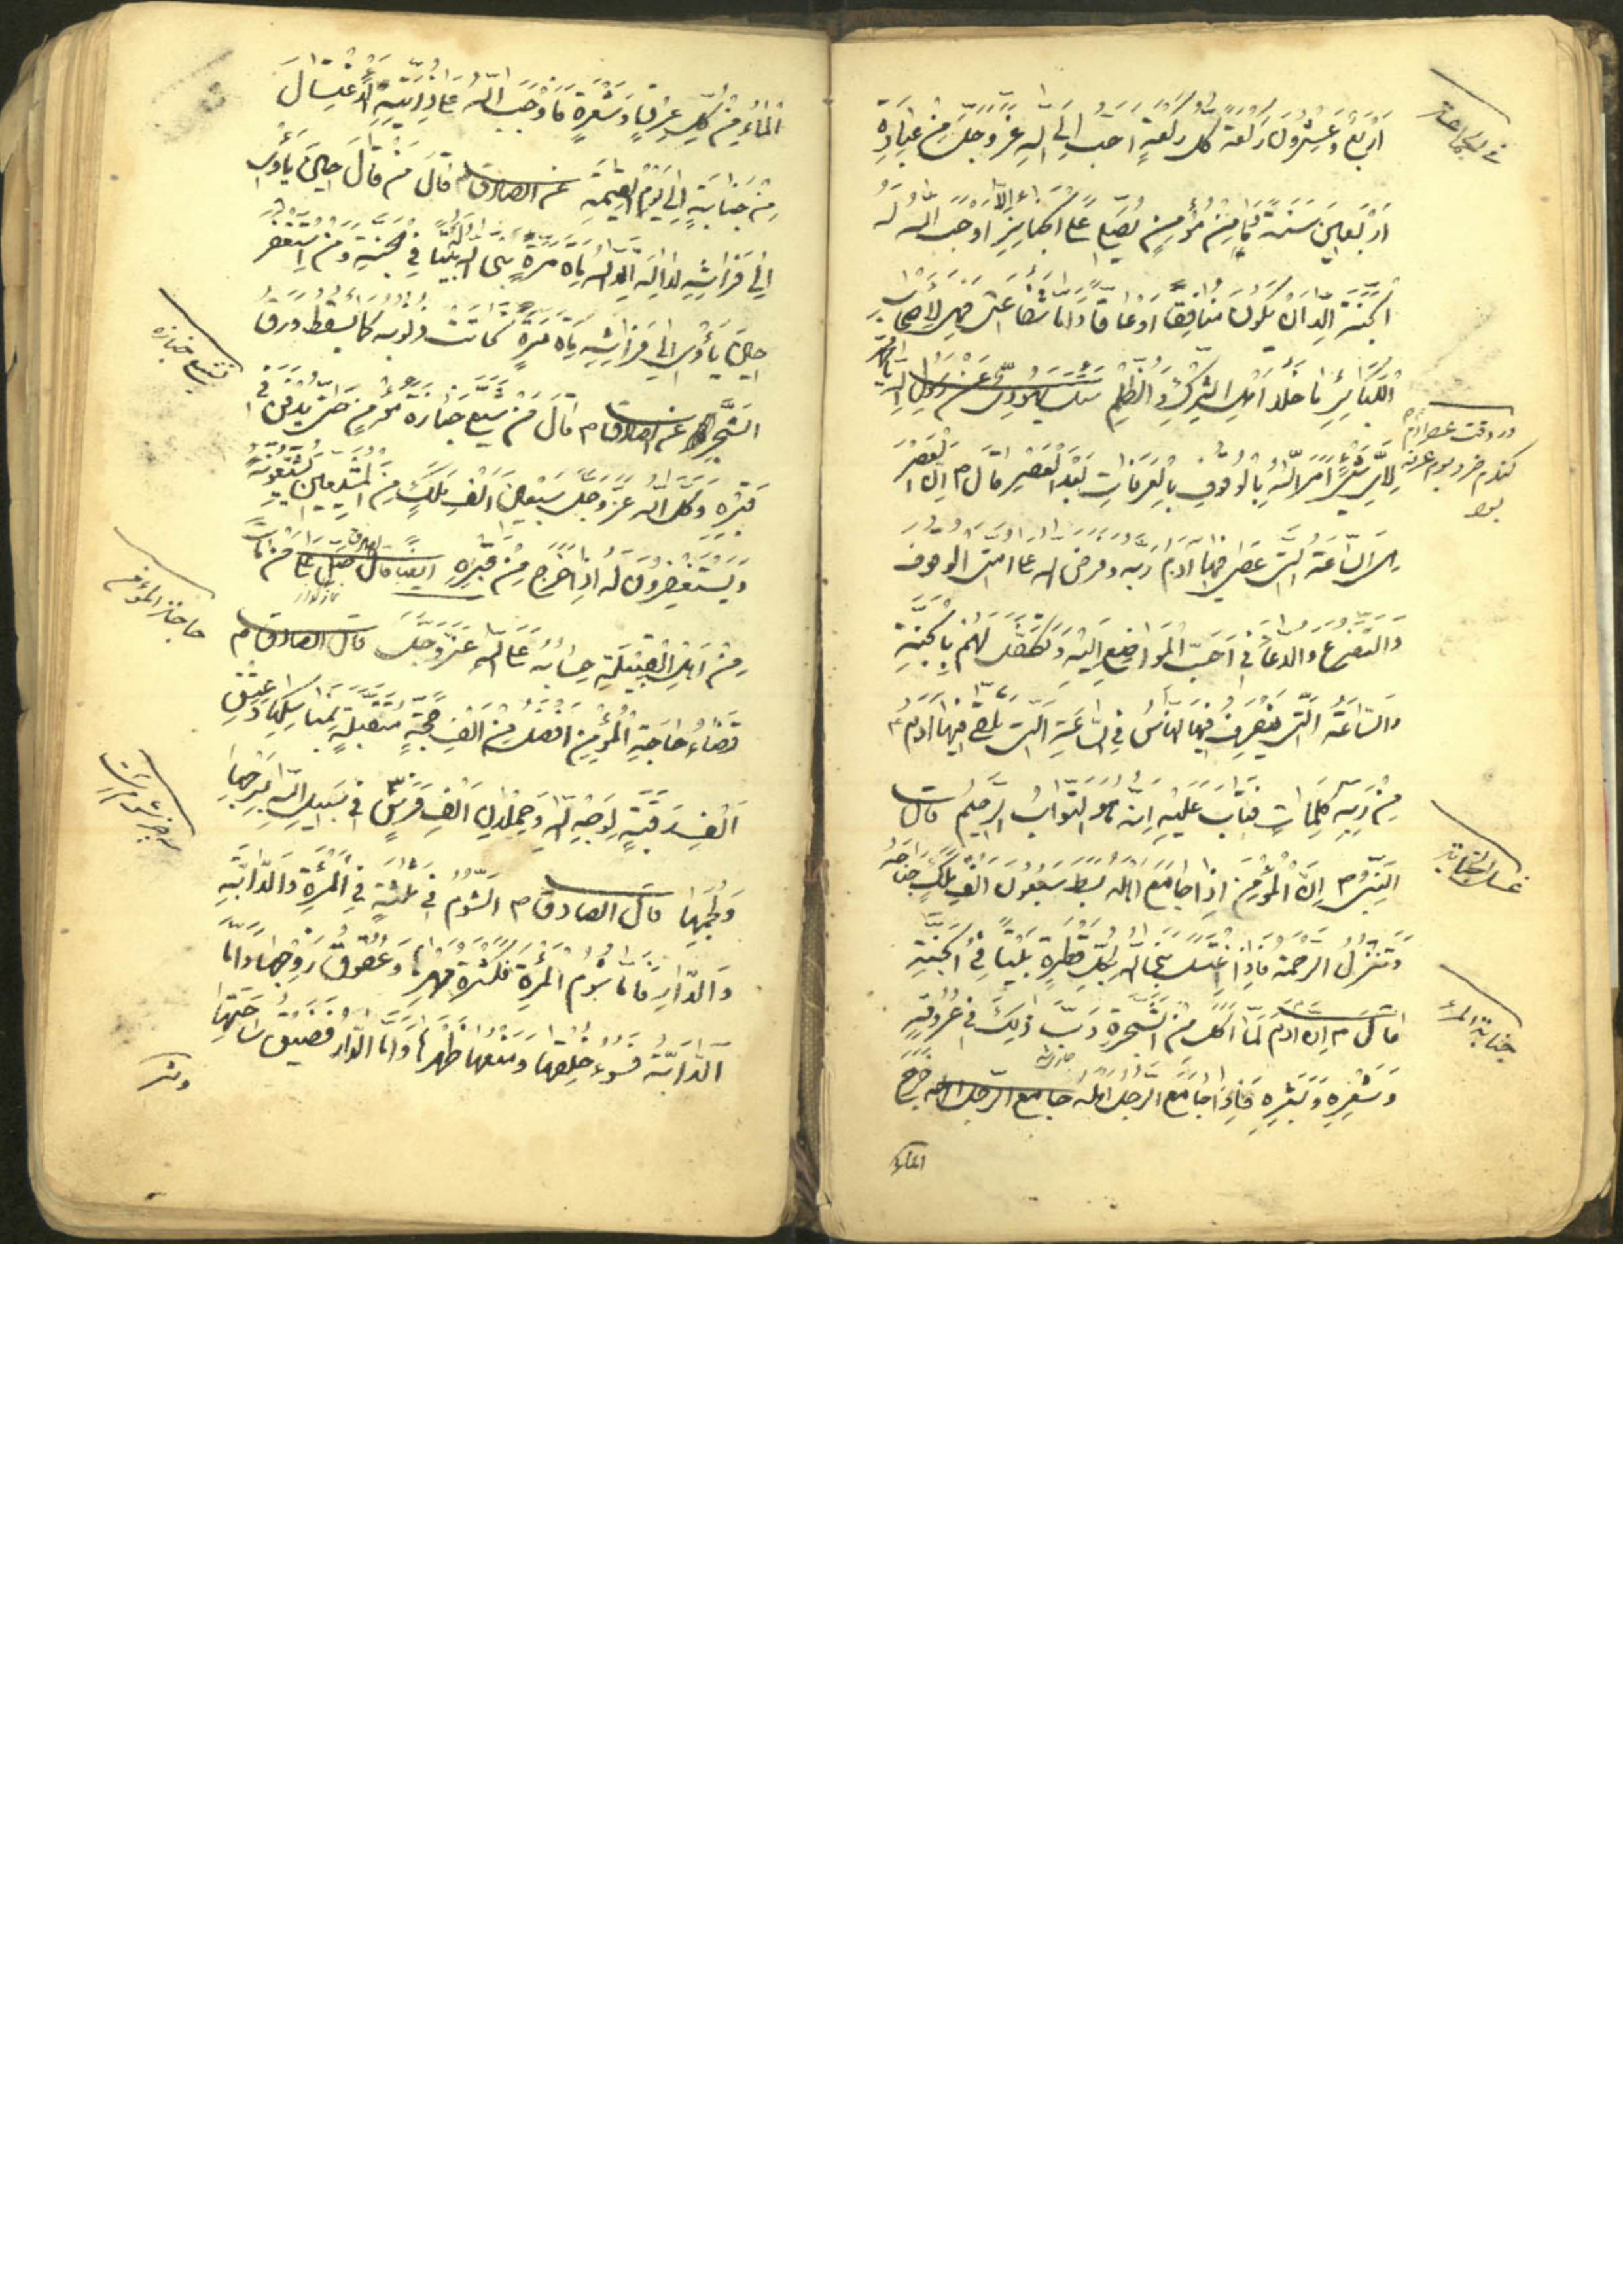 فی الجماعة
اَرْبَعٌ وَ عِشْرُونَ رَكْعَةً كُلُّ رَكْعَةٍ اَحَبُّ اِلَى اللهِ عَزَّ وَجَلَّ مِنْ عِبَادَةِ
اَرْبَعِينَ سَنَةً فَمَا مِنْ مُؤْمِنٍ يُصَلِّي عَلَى الجَنَايِزِ اِلَّا اَوْجَبَ اللهُ لَهُ
الجَنَّةَ اِلَّا اَنْ يَكُونَ مُنَافِقًا اَوْ عَاقًّا وَ اَمَّا شَفَاعَتِي فَهِيَ لِاَصْحَابِ
الْكَبَائِرِ مَا خَلَا اَهْلِ الشِّرْكِ وَ الظُّلْمِ سئل يهودي عَنْ رَسُولِ اللهِ
در وقت عصر آدم
كندم خورد يوم عرفه
بود
لِاَيِّ شَيْءٍ اَمَرَ اللهُ بِالْوُقُوفِ بِالْعَرَفَاتِ بَعْدَ الْعَصْرِ قَالَ م اِنَّ الْعَصْرَ
هِيَ السَّاعَةُ الَّتِي عَصَى فِيهَا آدَمُ رَبَّهُ وَ فَرَضَ الله عَلَى اُمَّتِي الْوُقُوفَ
وَ التَّضَرُّعَ وَ الدُّعَاءَ فِي اَحَبِّ الْمَوَاضِعِ اِلَيْهِ وَ تَكَفَّلَ لَهُمْ بِالْجَنَّةِ
وَ السَّاعَةُ الَّتِي يَنْصَرِفُ فِيهَا النَّاسُ فِي السَّاعَةِ الَّتِي تَلَقَّى فِيهَا آدَمُ
مِنْ رَبِّهِ كَلِمَاتٍ فَتَابَ عَلَيْهِ اِنَّهُ هُوَ التَّوَّابُ الرَّحِيمُ قال
غسل الجنابة
النَّبِيُّ م اِنَّ الْمُؤْمِنَ اِذَا جَامَعَ اَهْلَهُ بَسَطَ سَبْعُونَ اَلْفَ مَلَكٍ جَنَاحَهُ
وَ تَنْزِلُ الرَّحْمَةُ فَاِذَا اغْتَسَلَ بَنَى اللهُ بِكُلِّ قَطْرَةٍ بَيْتًا فِي الْجَنَّةِ
جنابة المرء
قال م اِنَّ آدَمَ لَمَّا اَكَلَ مِنَ الشَّجَرَةِ دَبَّ ذَلِكَ فِي عُرُوقِهِ
وَ شَعْرِهِ وَ بَشَرِهِ فَاِذَا جَامَعَ الرَّجُلُ اَهْلَهُ جامع الرجل اهله خَرَجَ
الماء
الْمَاءُ مِنْ كُلِّ عِرْقٍ وَ شَعْرَةٍ فَاَوْجَبَ اللهُ عَلَى ذُرِّيَّتِهِ الْاِغْتِسَالَ
مِنْ جَنَابَةٍ اِلَى يَوْمِ الْقِيمَةِ عن الصادق قَالَ مَنْ قَالَ حِينَ يَأْوِي
اِلَى فِرَاشِهِ لَا اِلَهَ اِلَّا اللهُ مِاَةَ مَرَّةٍ بَنَى اللهُ لَهُ بَيْتًا فِي الْجَنَّةِ وَ مَنِ اسْتَغْفَرَ
حِينَ يَأْوِي اِلَى فِرَاشِهِ مِاَةَ مَرَّةٍ تَحَاتَّتْ ذُنُوبُهُ كَمَا يَسْقُطُ وَرَقُ
تشيع جنازه
الشَّجَرِ عن الصادق م قَالَ مَنْ شَيَّعَ جَنَازَةَ مُؤْمِنٍ حَتَّى يُدْفَنَ فِي
قَبْرِهِ وَكَّلَ اللهُ عَزَّ وَجَلَّ سَبْعِينَ اَلْفَ مَلَكٍ مِنَ الْمُشَيِّعِينَ يُشَيِّعُونَهُ
وَ يَسْتَغْفِرُونَ لَهُ اِذَا خَرَجَ مِنْ قَبْرِهِ ايضا قال الصادق صَلِّ عَلَى مَنْ مَاتَ
مِنْ اَهْلِ الْقِبْلَةِ حِسَابُهُ عَلَى اللهِ عَزَّ وَجَلَّ قال الصادق م
حاجة المؤمن
قَضَاءُ حَاجَةِ الْمُؤْمِنِ اَفْضَلُ مِنْ اَلْفِ حَجَّةٍ مُتَقَبَّلَةٍ بِمَنَاسِكِهَا وَ عِتْقِ
اَلْفِ رَقَبَةٍ لِوَجْهِ اللهِ وَ حُمْلَانِ اَلْفِ فَرَسٍ فِي سَبِيلِ اللهِ بِسَرْجِهَا
سه چيز شوم است
وَ لُجُمِهَا قال الصادق م الشُّومُ فِي ثَلثَةٍ فِي الْمَرْئَةِ وَ الدَّابَّةِ
وَ الدَّارِ فَاَمَّا شُومُ الْمَرْئَةِ فَكَثْرَةُ مَهْرِهَا وَ عُقُوقُ زَوْجِهَا وَ اَمَّا
الدَّابَّةُ فَسُوءُ خُلْقِهَا وَ مَنْعُهَا ظَهْرَهَا وَ اَمَّا الدَّارُ فَضِيقُ سَاحَتِهَا
وشر